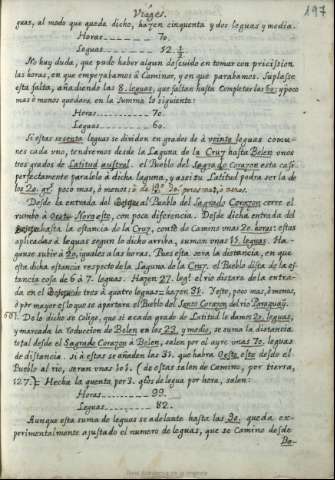 Viages.
197
guas, al modo que queda dicho, hazen cinquenta y dos leguas y media.
Horas --------- 70.
Leguas --------- 52. 1/2
No hay duda, que pudo haber algun descuido en tomar con precission
las horas, en que empezabamos à Caminar, y en que parabamos. Suplase
esta falta, añadiendo las 8. leguas, que faltan hasta completar las 60: y poco
mas ò menos quedarà en la summa lo siguiente:
Horas --------- 70.
Leguas --------- 60.
Si estas sesenta leguas se dividen en grados de à veinte leguas comu-
nes cada uno, tendremos desde la Laguna de la Cruz hasta Belen unos
tres grados de Latitud austral. el Pueblo del Sagrado Corazon està casi
perfectamente paralelo à dicha laguna, y assi su Latitud podra ser la de
los 20. gr. poco mas, ò menos: ò de 19. 30. poco mas, ò menos.
Desde la entrada del Bosque al Pueblo del Sagrado Corazon corre el
rumbo à Oeste Noroeste, con poca diferencia. Desde dicha entrada del
Bosque hasta la estancia de la Cruz, conte de Camino unas 20. horas: estas
aplicadas à leguas segun lo dicho arriba, suman unas 15. leguas. Ha-
ganse subir à 20, iguales à las horas. Pues esta serà la distancia, en que
està dicha estancia respecto de la Laguna de la Cruz. el Pueblo dista de la es-
tancia cosa de 6 à 7. leguas. Hazen 27. leg.s el rio distarà de la entra-
da en el Bosque de tres à quatro leguas: hazen 31. Esto, poco mas, ò menos,
ò por mayor es lo que se apartarà el Pueblo del Santo Corazon del rio Paraguaÿ.
501. De lo dicho se Colige, que si a cada grado de Latitud le damos 20. leguas,
y marcada la reduccion de Belen en los 23. y medio, se suma la distancia
total desde el Sagrado Corazon à Belen, salen por el ayre unas 70. leguas
de distancia. Si à estas se añaden las 31. que habrà Oeste, este desde el
Pueblo al rio, seran unas 101. (de estas salen de Camino, por tierra,
127.) = Hecha la quenta por 3. q.tos de legua por hora, salen:
Horas --------- 99.
Leguas --------- 82.
Aunque esta suma de leguas se adelante hasta las 90. queda ex-
perimentalmente ajustado el numero de leguas, que se Camino desde
Be-